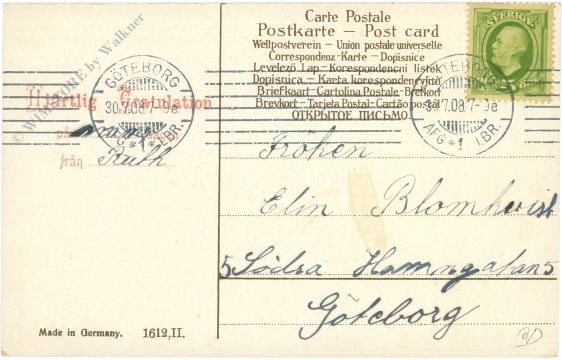 Carte Postale
Postkarte — Post card
Weltpostverein — Union postale universelle
Correspondenz-Karte — Dopisnice
Levelező Lap — Korespondencní listek
Dopisnica — Karta korespondencyjna
Briefkaart — Cartolina Postale — Brefkort
Brevkort — Tarjeta Postal — Cartão postal
ОТКРЫТОЕ ПИСЬМО
SVERIGE
GÖTEBORG
30.7.08
AFG *1* LBR.
GÖTEBORG
30.7.08
AFG *1 LBR.
Hjärtlig Gratulation
på
från Ruth
© by Walkner
Fröken
Elin Blomkvist
5 Södra Hamngatan 5
Göteborg
Made in Germany. 1612,II.